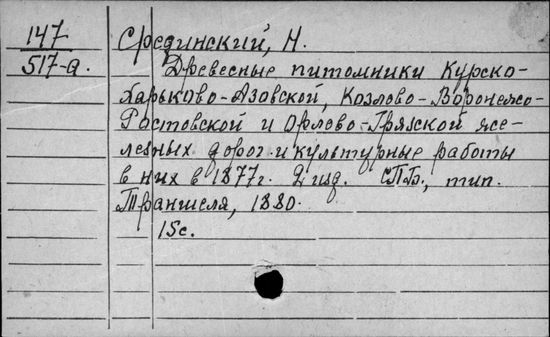 147
517-а.
Срединский, Н.
Древесные питомники Курско-
Харьково-Азовской, Козлово-Воронежо-
Ростовской и Орлово-Грязской же-
лезных дорог и культурные работы
в них в 1877г. 2 изд. СПБ., тип.
Траншеля, 1880.
15с.